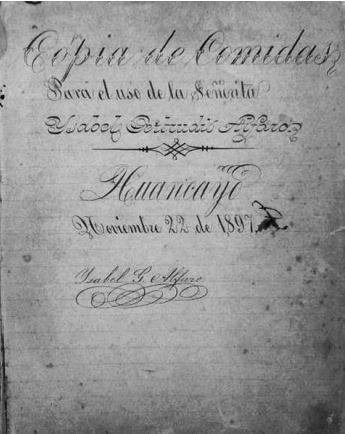 Copia de Comidas
Para el uso de la Señorita
Ysabel Getrudis Alfaro
Huancayo
Noviembre 22 de 1897.
Ysabel G. Alfaro